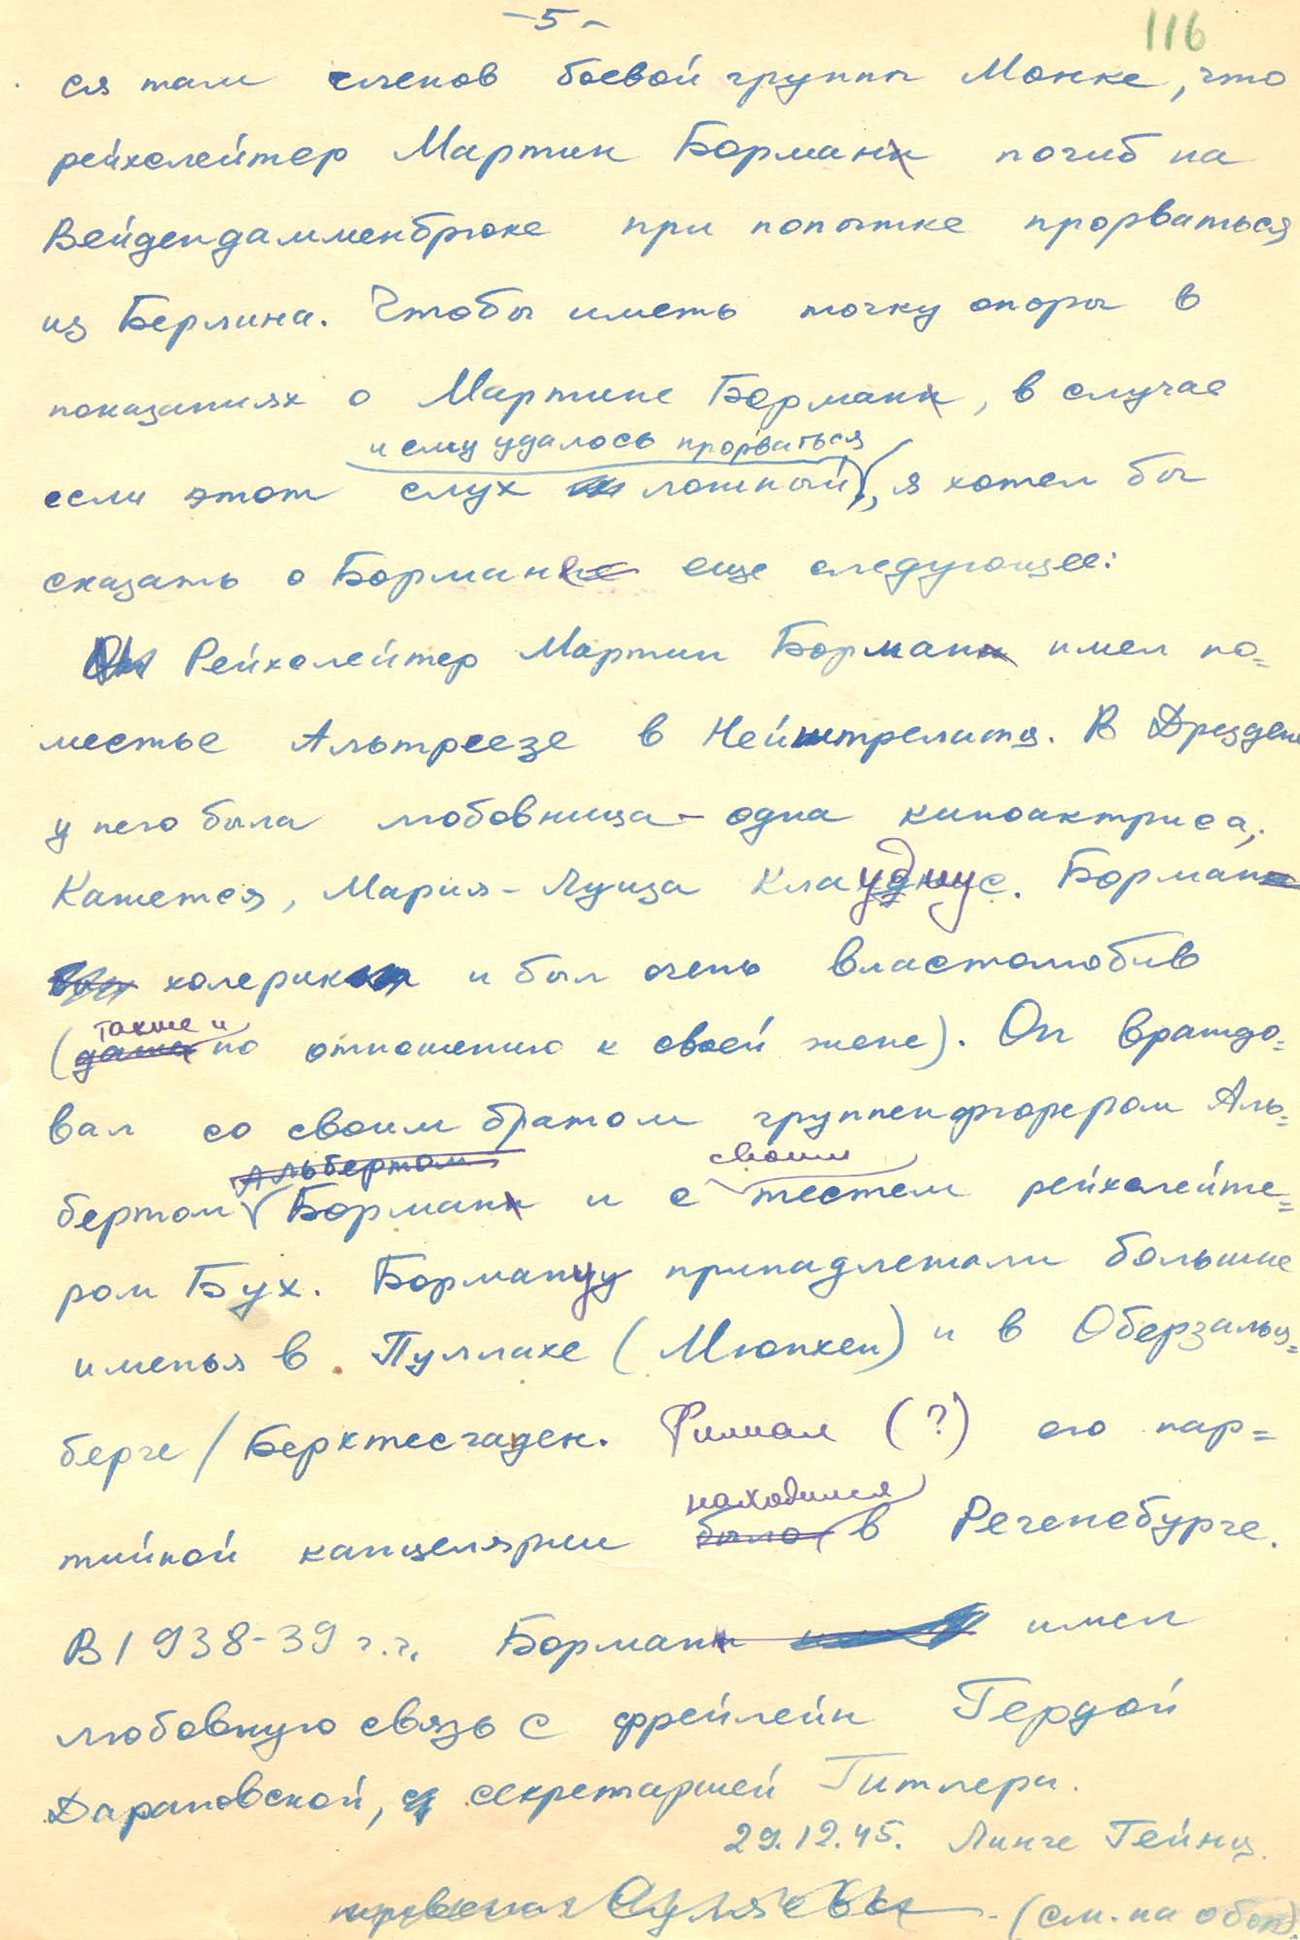 -5-
116
ся там членов боевой группы Монке, что
рейхслейтер Мартин Борман погиб на
Вейдендамменбрюке при попытке прорваться
из Берлина. Чтобы иметь точку опоры в
показаниях о Мартине Борман, в случае
и ему удалось прорваться
если этот слух ложный, я хотел бы
сказать о Бормане еще следующее:
Рейхслейтер Мартин Борман имел по=
местье Альтреезе в Нейштрелитц. В Дрездене
у него была любовница - одна киноактриса,
Кажется, Мария-Луиза Клаудиус. Борман
холерик и был очень властолюбив
также и
(даже по отношению к своей жене). Он враждо=
вал со своим братом группенфюрером Аль=
Альбертом своим
бертом Борман и с тестем рейхслейте=
ром Бух. Борману принадлежали большие
именья в Пуллахе (Мюнхен) и в Оберзальц=
берге / Берхтесгаден. Филиал (?) его пар=
находился
тийной канцелярии было в Регенсбурге.
В 1938-39 г.г. Борман имел
любовную связь с фрейлейн Гердой
Дарановской, секретаршей Гитлера.
29.12.45. Линге Гейнц.
(см. на обор.)